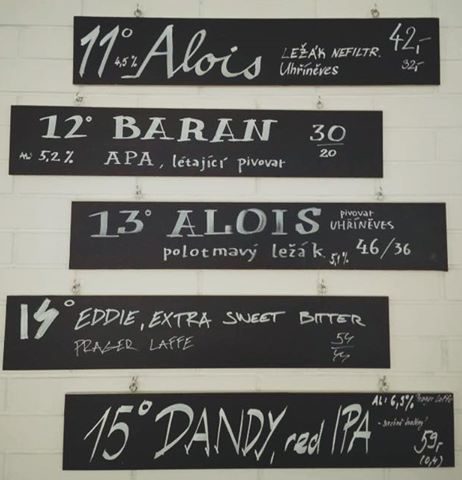 11° 4,5% Alois LEŽÁK NEFILTR. 42,-
Uhříněves 32,-
12° BARAN 30
Alk 5,2% APA, létající pivovar 20
13° ALOIS pivovar UHŘÍNĚVES
polotmavý ležák 5,1% 46/36
14° EDDIE, EXTRA SWEET BITTER 54
PRAGER LAFFE 44
15° DANDY, red IPA Alk 6,3% Prager Laffe
59,-
(0,4)